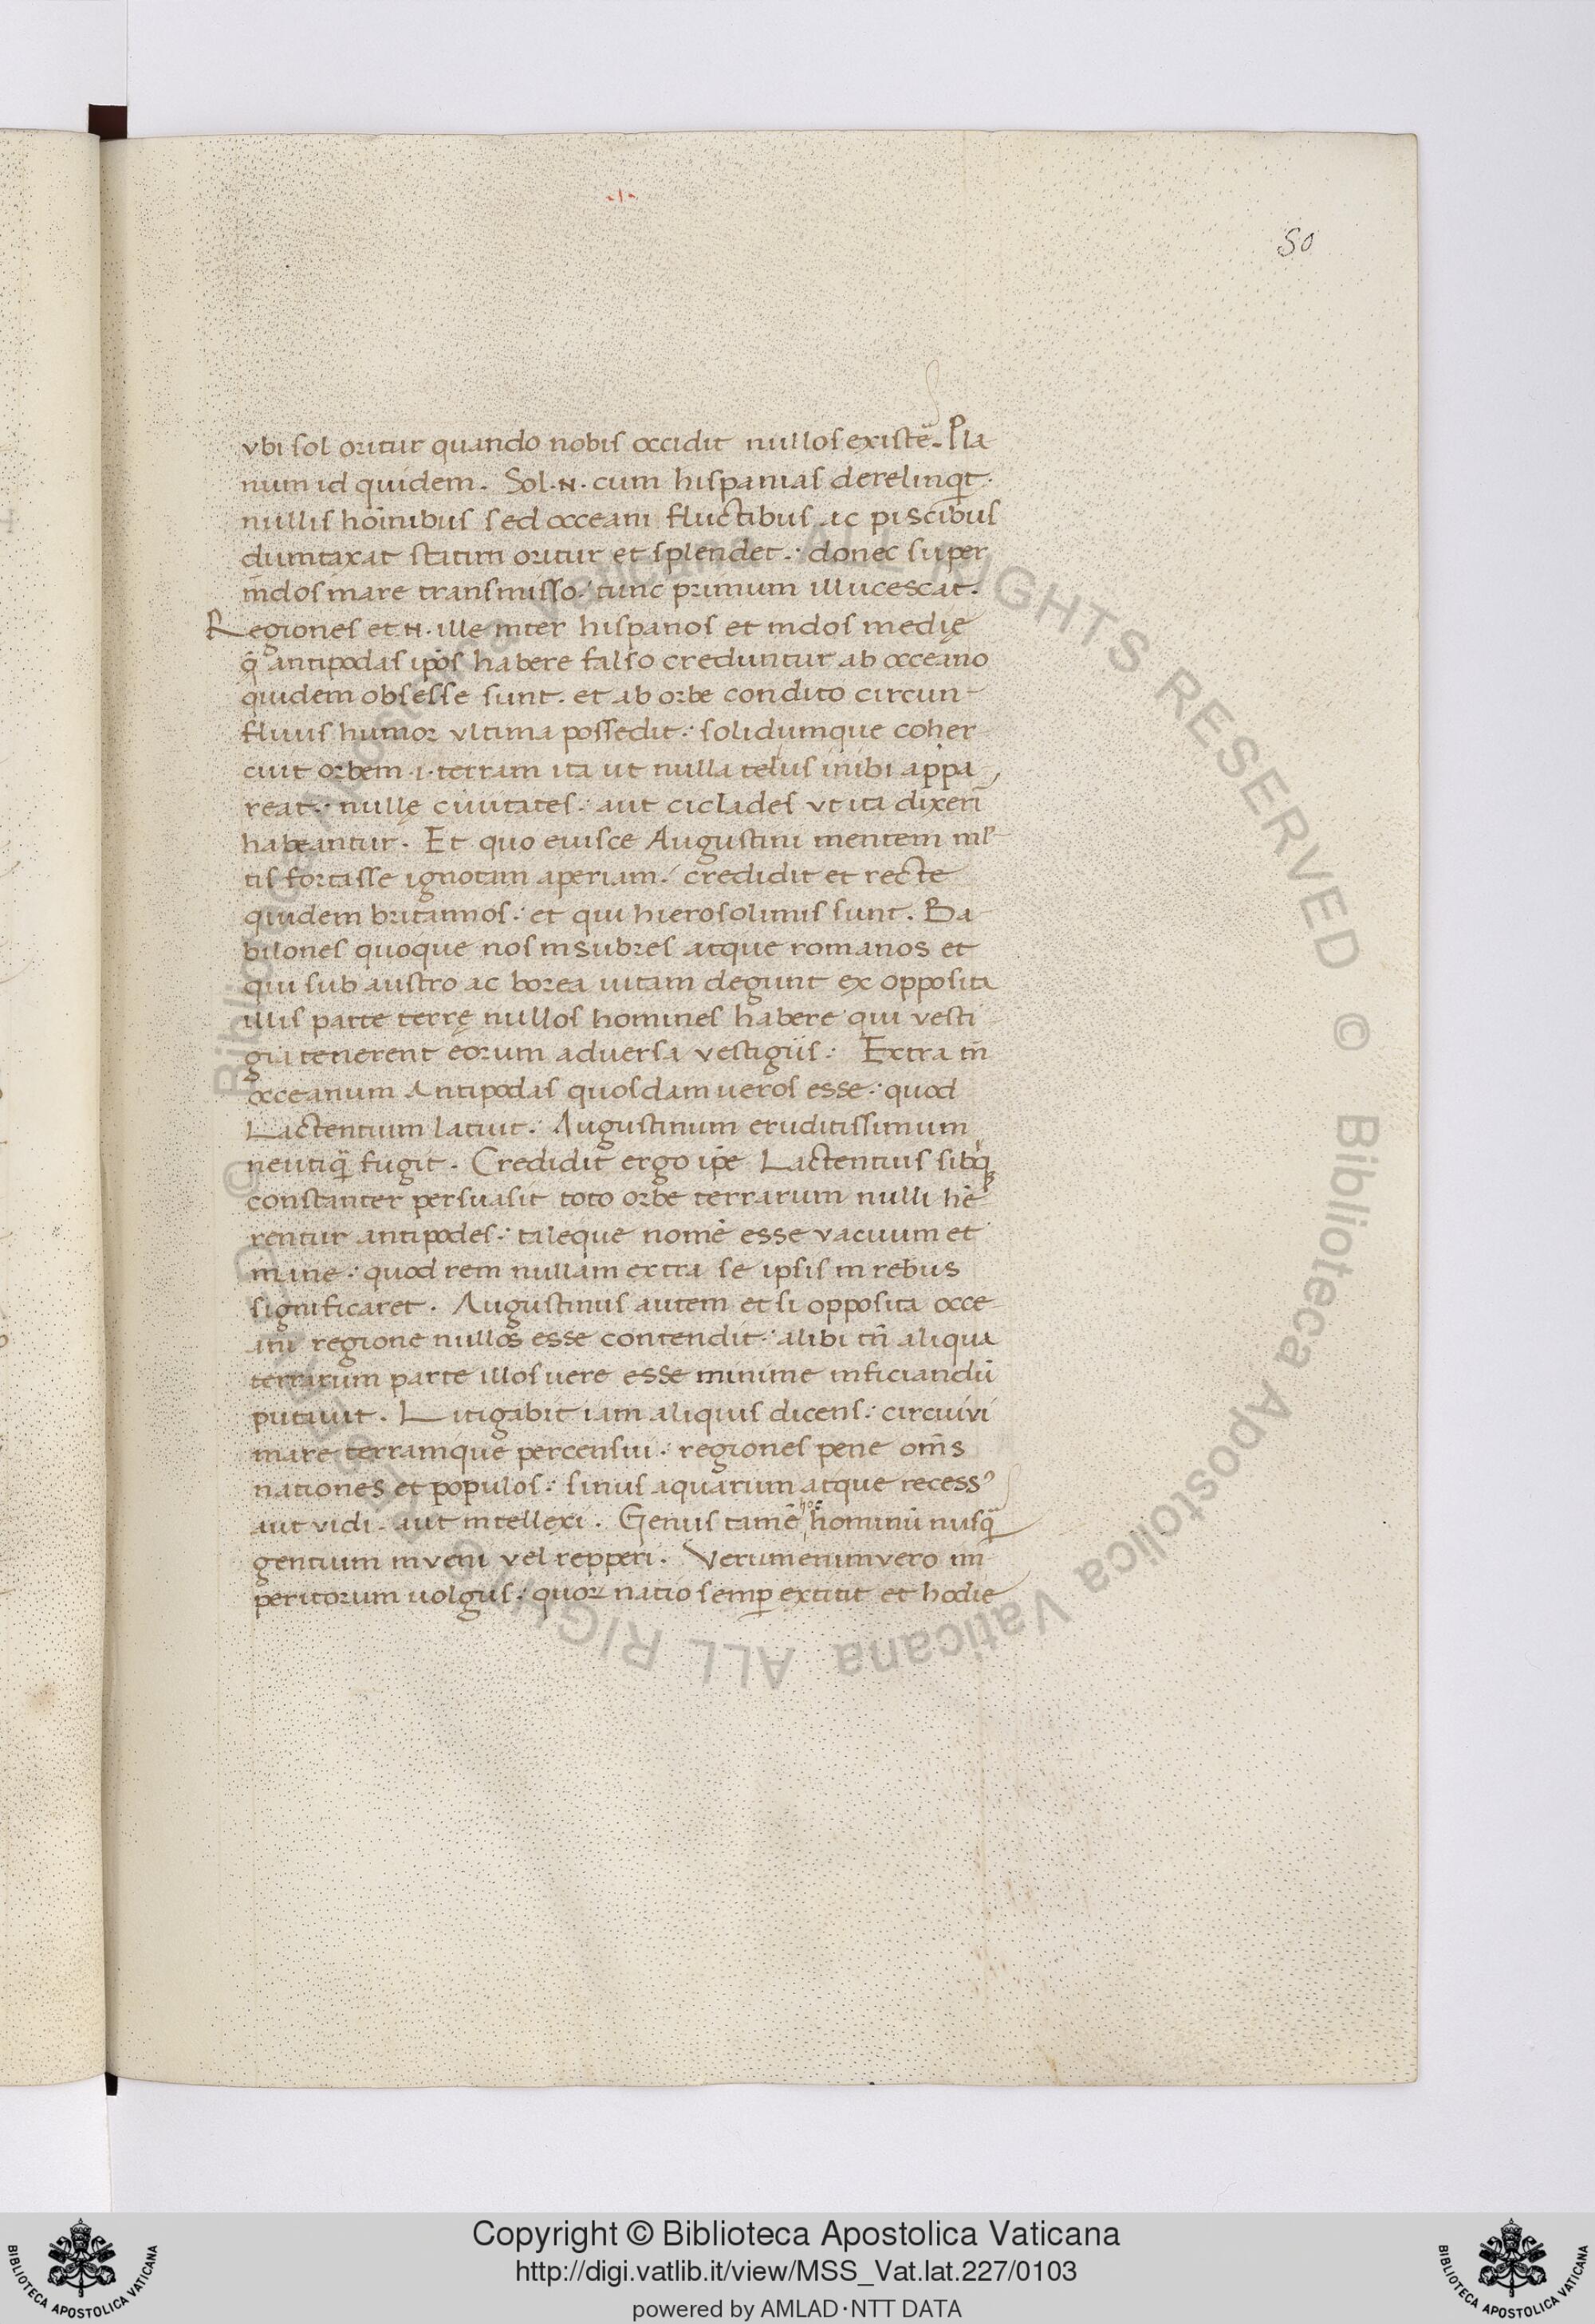 ·I·
50
vbi sol oritur quando nobis occidit nullos existē. Pla
num id quidem. Sol .N. cum hispanias derelinqt.
nullis hoīnibus sed occeani fluctibus ac piscibus
dumtaxat statim oritur et splendet.: donec super
indos mare transmisso: tunc primum illucescat.
Regiones et N. ille inter hispanos et indos medię
q̄ antipodas ip̄os habere falso creduntur ab occeano
quidem obsesse sunt. et ab orbe condito circun-
fluus humor vltima possedit.: solidumque coher
cuit orbem .i. terram ita ut nulla telus inibi appa
reat.: nullę ciuitates.: aut ciclades vt ita dixerī
habeantur. Et quo eiusce Augustini mentem ml'
tis fortasse ignotam aperiam: credidit et recte
quidem britannos.: et qui hierosolimis sunt. Ba
bilones quoque nos insubres atque romanos et
qui sub austro ac borea uitam degunt ex opposita
illis parte terrę nullos homines habere qui vesti
gia tenerent eorum adversa vestigiis.: Extra tn̄
occeanum Antipodas quosdam ueros esse.: quod
Lactentium latuit.: Augustinum eruditissimum
neutiq̄ fugit. Credidit ergo ip̄e Lactentius sibq̢
constanter persuasit toto orbe terrarum nulli hē
rentur antipodes.: taleque nomē esse vacuum et
inane.: quod rem nullam extra se ipsis in rebus
significaret. Augustinus autem et si opposita occe
ani regione nullos esse contendit.: alibi tn̄ aliqua
terrarum parte illos uere esse minime inficiandū
putauit. Litigabit iam aliquis dicens.: circuivi
mare terramque percensui.: regiones pene om̄s
nationes et populos.: sinus aquarum atque recess⁹
aut vidi. aut intellexi. Genus tamē hoc hominū nusq̄
gentium inveni vel repperi. Verumenimvero im
peritorum uolgus.: quoꝝ natio semꝑ extitit et hodie
© Biblioteca Apostolica Vaticana ALL RIGHTS RESERVED © Biblioteca Apostolica Vaticana ALL RIGHTS RESERVED
Copyright © Biblioteca Apostolica Vaticana
http://digi.vatlib.it/view/MSS_Vat.lat.227/0103
powered by AMLAD·NTT DATA
BIBLIOTECA APOSTOLICA VATICANA
BIBLIOTECA APOSTOLICA VATICANA